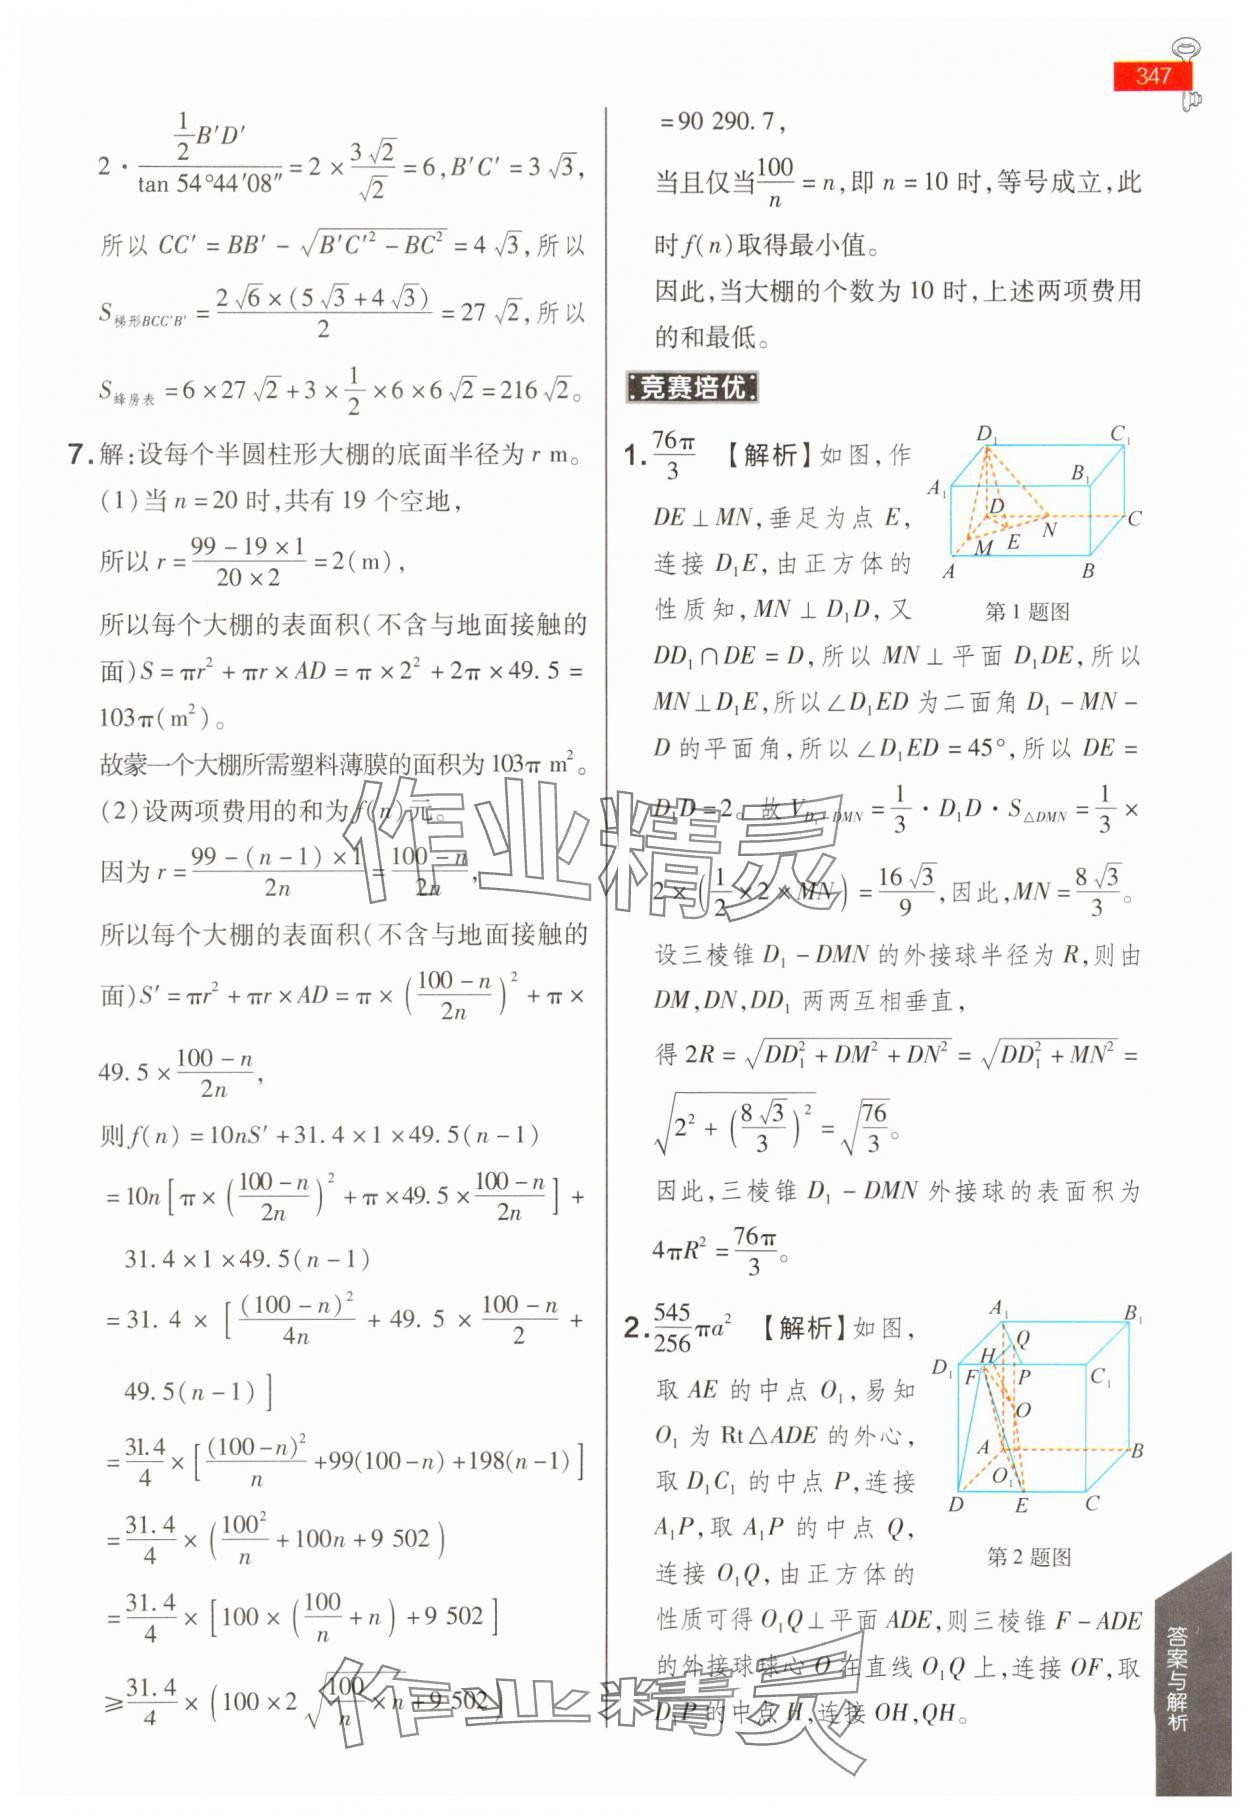 347
2·(1/2 B′D′)/(tan 54°44′08″)=2×(3√2)/(√2)=6,B′C′=3√3,
所以 CC′=BB′-√(B′C′²-BC²)=4√3,所以
S梯形BCC′B′=(2√6×(5√3+4√3))/2=27√2,所以
S蜂房表=6×27√2+3×1/2×6×6√2=216√2。
7.解:设每个半圆柱形大棚的底面半径为r m。
(1)当n=20时,共有19个空地,
所以r=(99-19×1)/(20×2)=2(m),
所以每个大棚的表面积(不含与地面接触的
面)S=πr²+πr×AD=π×2²+2π×49.5=
103π(m²)。
故蒙一个大棚所需塑料薄膜的面积为103π m²。
(2)设两项费用的和为f(n)元。
因为r=(99-(n-1)×1)/(2n)=(100-n)/(2n),
所以每个大棚的表面积(不含与地面接触的
面)S′=πr²+πr×AD=π×((100-n)/(2n))²+π×
49.5×(100-n)/(2n),
则f(n)=10nS′+31.4×1×49.5(n-1)
=10n[π×((100-n)/(2n))²+π×49.5×(100-n)/(2n)]+
31.4×1×49.5(n-1)
=31.4×[(100-n)²/(4n)+49.5×(100-n)/2+
49.5(n-1)]
=31.4/4×[(100-n)²/n+99(100-n)+198(n-1)]
=31.4/4×(100²/n+100n+9 502)
=31.4/4×[100×(100/n+n)+9 502]
≥31.4/4×(100×2√(100/n×n)+9 502)
=90 290.7,
当且仅当100/n=n,即n=10时,等号成立,此
时f(n)取得最小值。
因此,当大棚的个数为10时,上述两项费用
的和最低。
竞赛培优
1.76π/3 【解析】如图,作
DE⊥MN,垂足为点E,
连接D₁E,由正方体的
性质知,MN⊥D₁D,又
D₁ C₁ A₁ B₁ D N C M E A B
第1题图
DD₁∩DE=D,所以MN⊥平面D₁DE,所以
MN⊥D₁E,所以∠D₁ED为二面角D₁-MN-
D的平面角,所以∠D₁ED=45°,所以DE=
D₁D=2。故V D₁-DMN=1/3·D₁D·S△DMN=1/3×
2×(1/2×2×MN)=16√3/9,因此,MN=8√3/3。
设三棱锥D₁-DMN的外接球半径为R,则由
DM,DN,DD₁两两互相垂直,
得2R=√(DD₁²+DM²+DN²)=√(DD₁²+MN²)=
√(2²+(8√3/3)²)=√(76/3)。
因此,三棱锥D₁-DMN外接球的表面积为
4πR²=76π/3。
2.545/256πa² 【解析】如图,
取AE的中点O₁,易知
O₁为Rt△ADE的外心,
取D₁C₁的中点P,连接
A₁P,取A₁P的中点Q,
连接O₁Q,由正方体的
A₁ B₁ Q H D₁ F P C₁ O A B O₁ D E C
第2题图
性质可得O₁Q⊥平面ADE,则三棱锥F-ADE
的外接球球心O在直线O₁Q上,连接OF,取
D₁P的中点H,连接OH,QH。
答案与解析
作业精灵
作业精灵